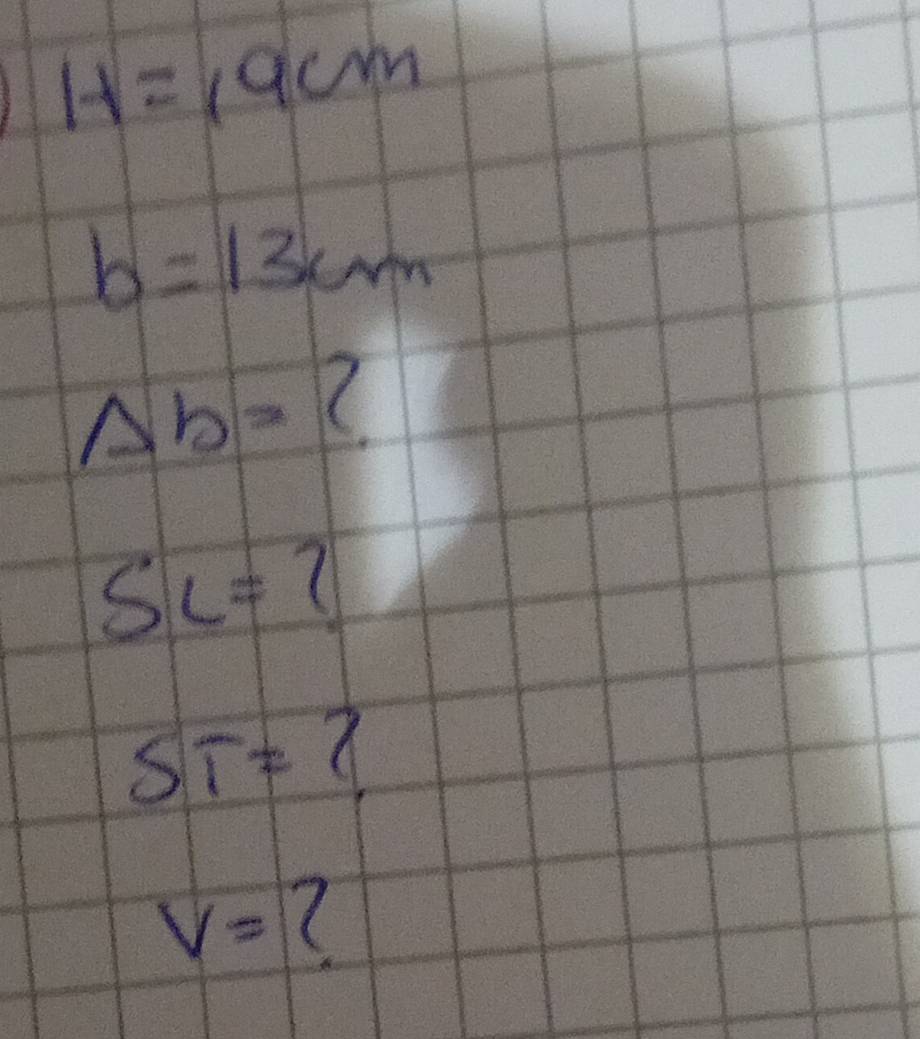 H=19cm
b=13cm
Ab=?
SL=?
ST=?
V=?